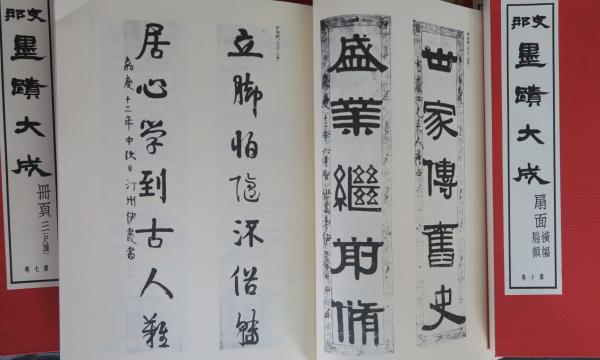 支那
墨蹟大成
扇面
橫幅
扁額
世家傳舊史
盛業繼前脩
立脚怕随流俗轉
居心学到古人難
嘉慶十二年中秋日汀州伊秉綬書
支那
墨蹟大成
冊頁 三(尺牘)